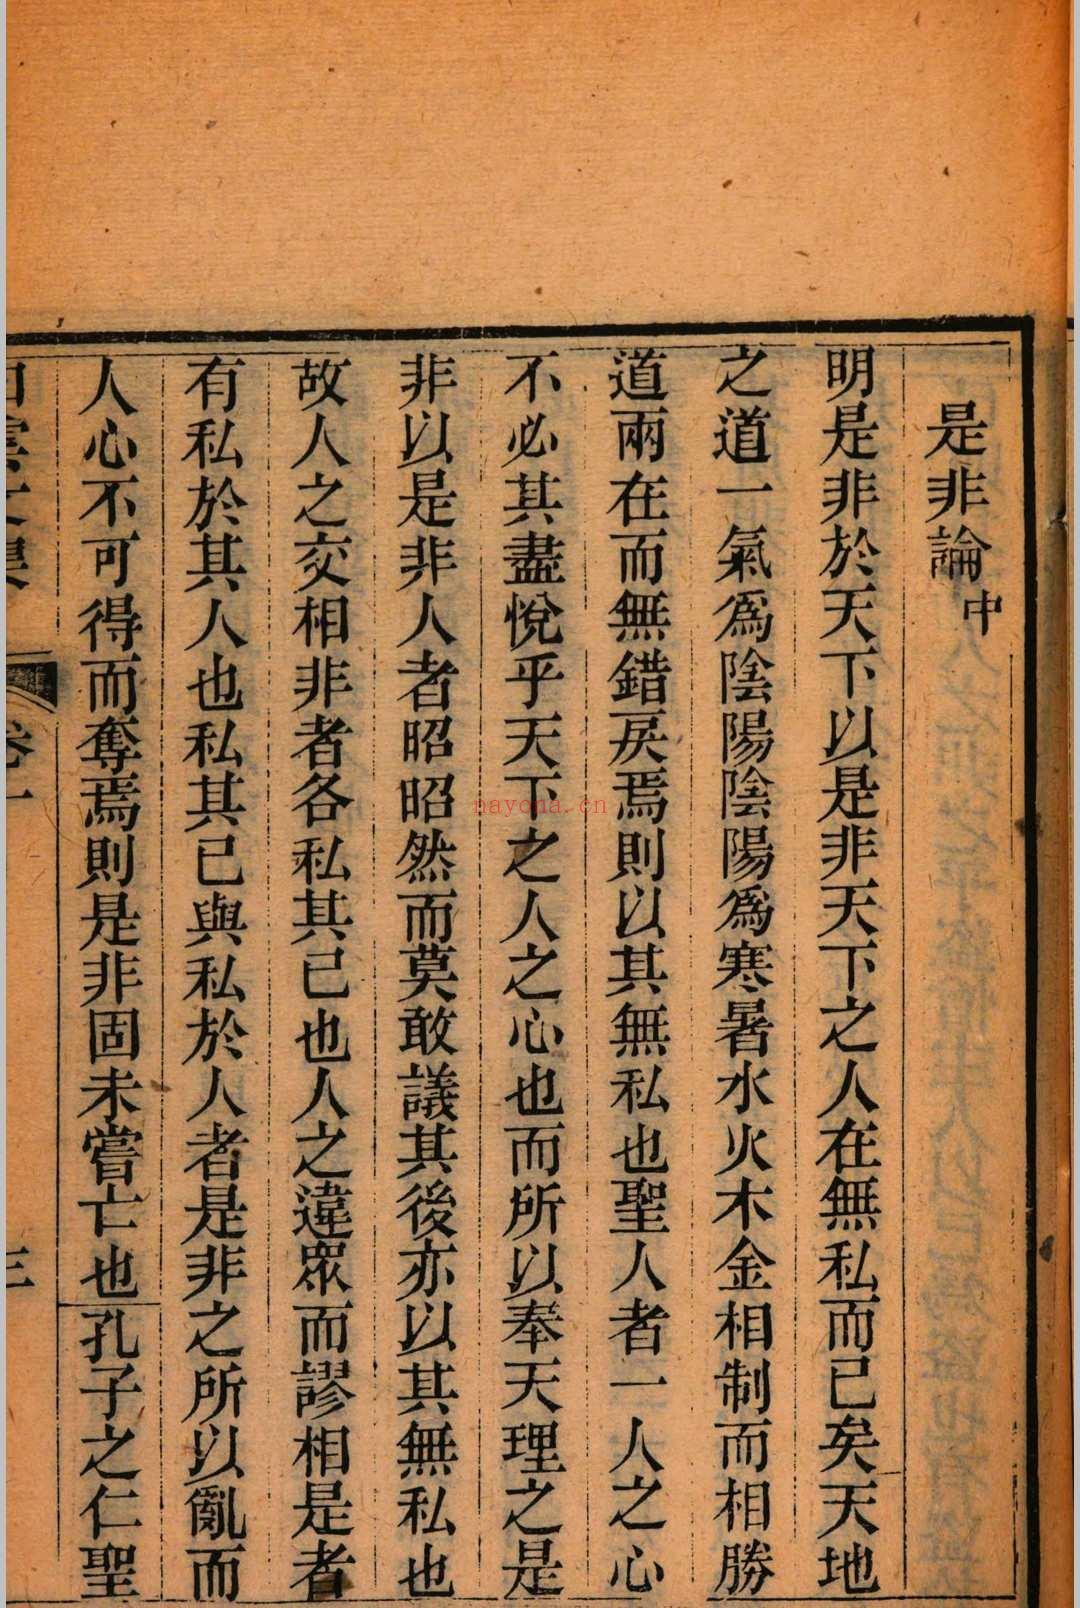 是非論中
明是非於天下以是非天下之人在無私而已矣天地
之道一氣爲陰陽陰陽爲寒暑水火木金相制而相勝
道兩在而無錯戾焉則以其無私也聖人者一人之心
不必其盡悅乎天下之人之心也而所以奉天理之是
非以是非人者昭昭然而莫敢議其後亦以其無私也
故人之交相非者各私其已也人之違眾而謬相是者
有私於其人也私其已與私於人者是非之所以亂而
人心不可得而奪焉則是非固未嘗亡也孔子之仁聖
卷一
三
nayona.cn